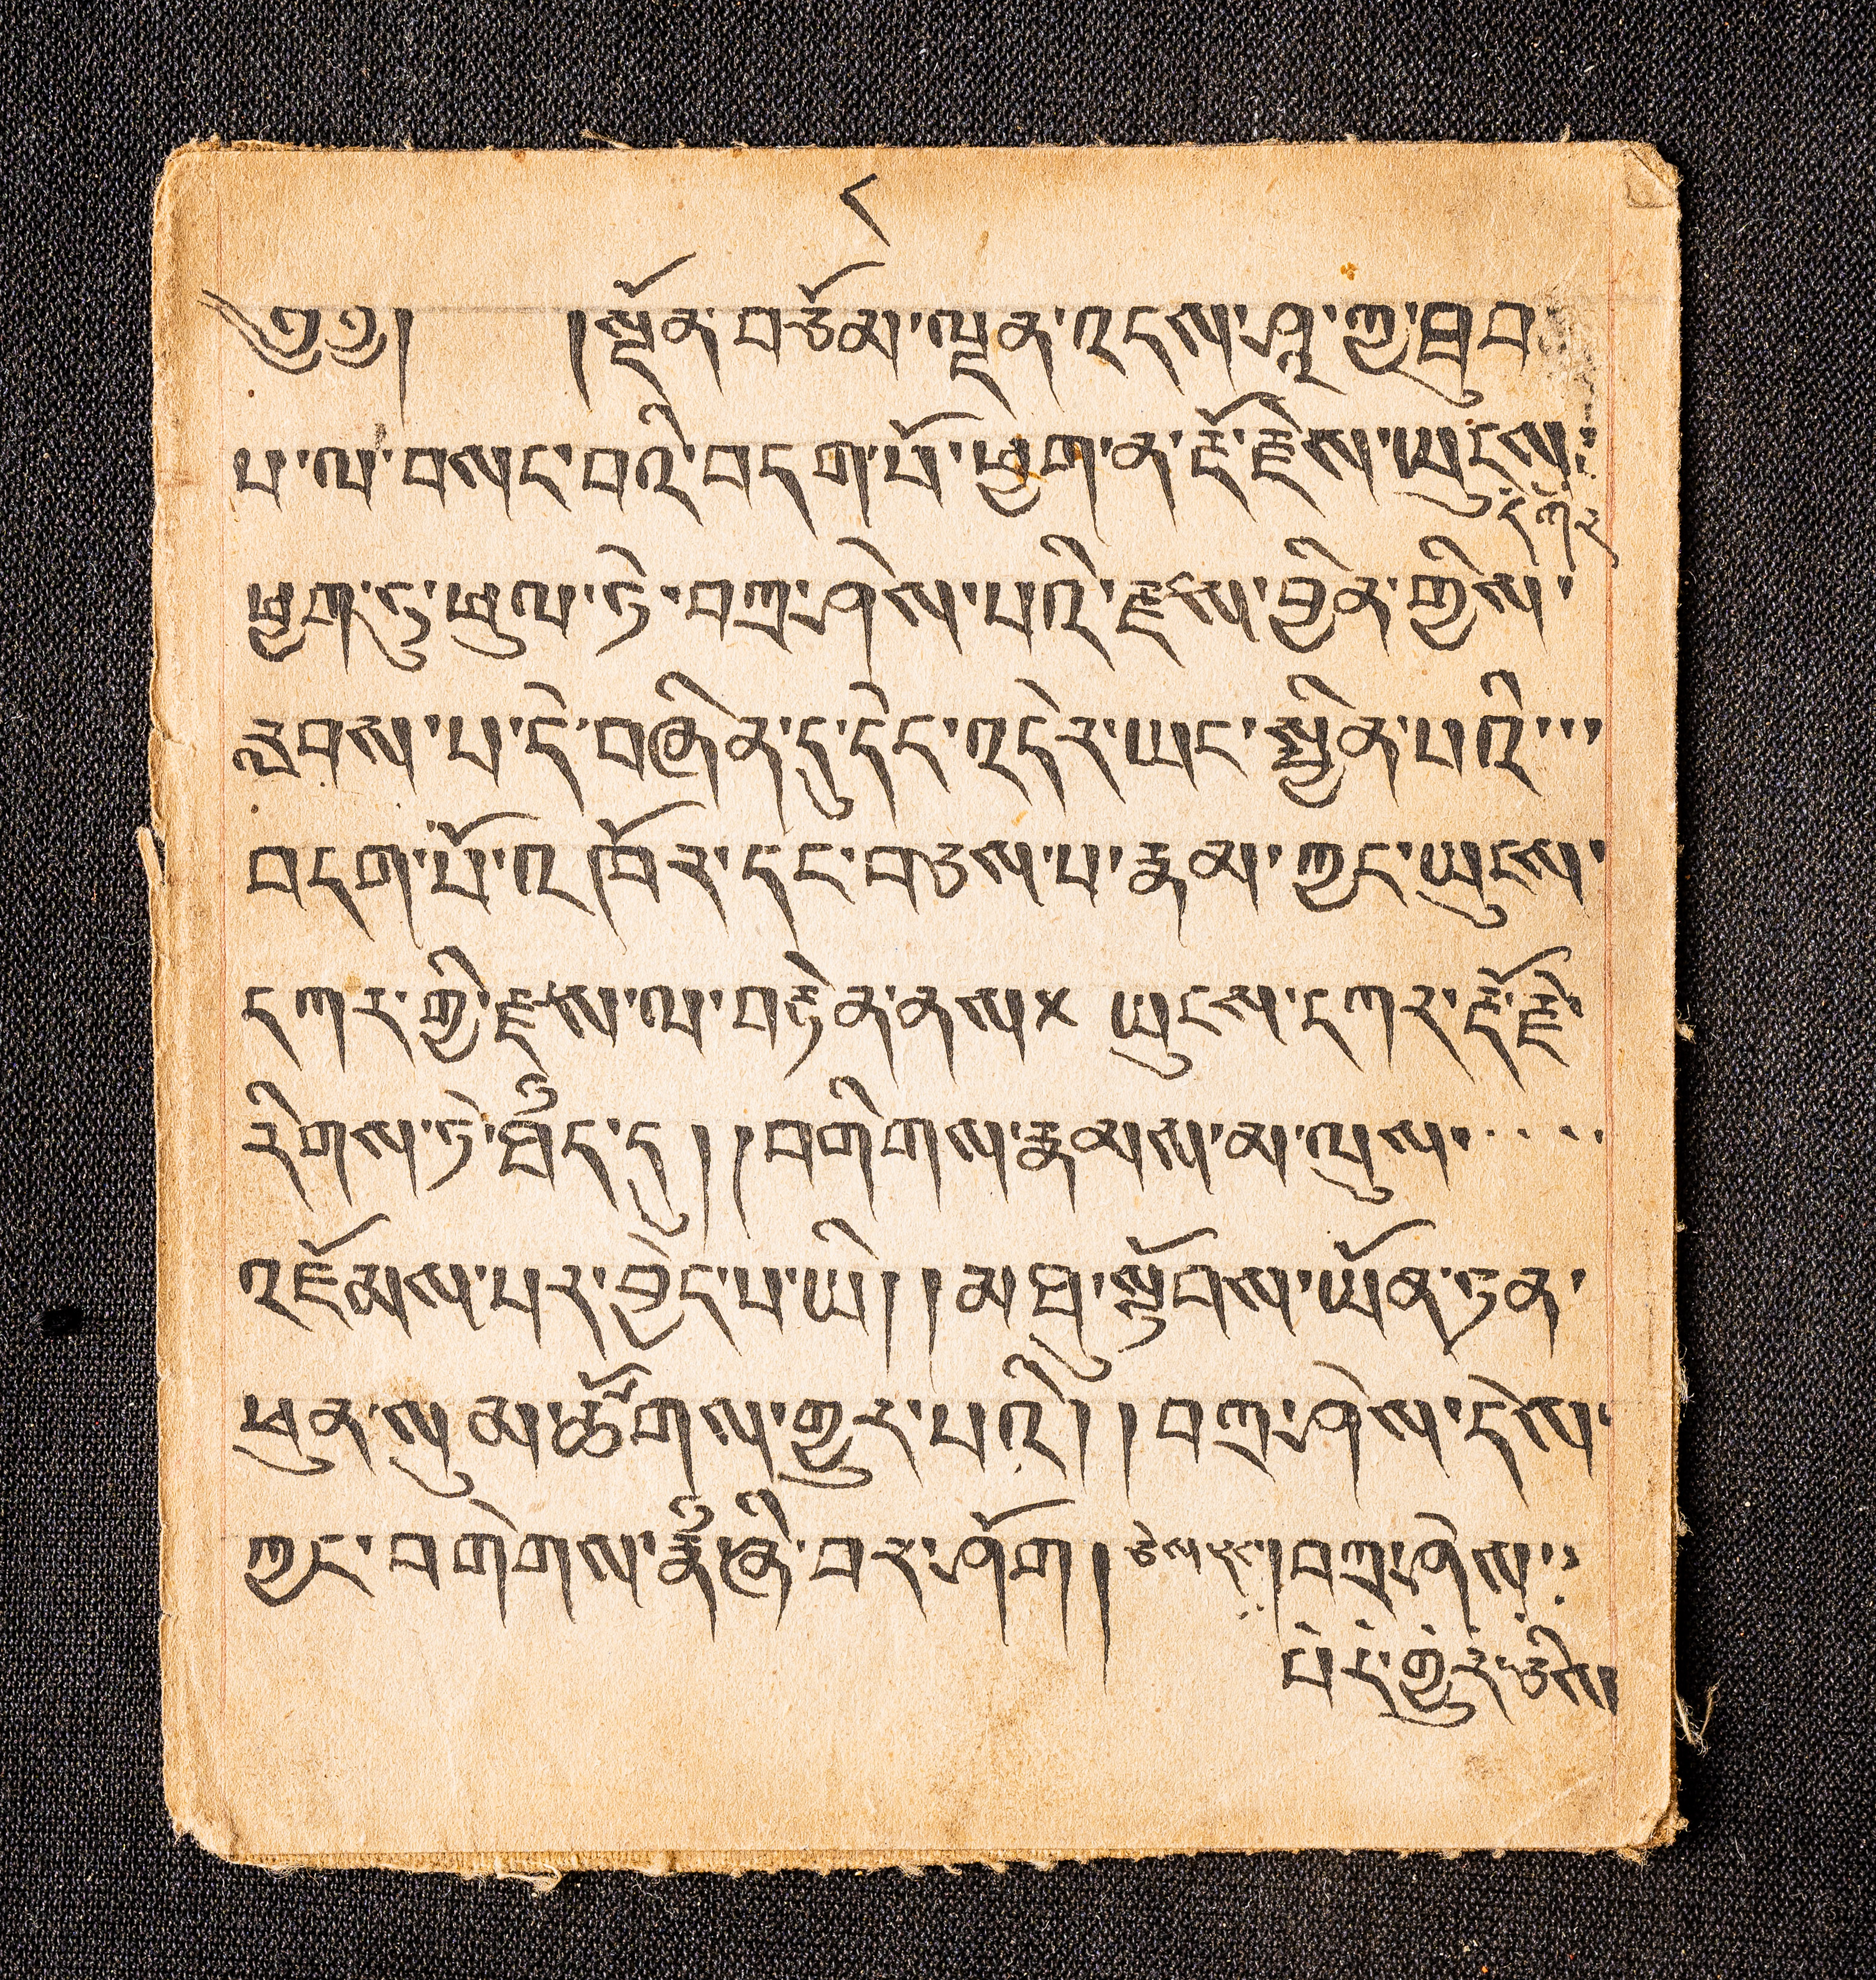 ༨
༄༅། །སྔོན་བཅོམ་ལྡན་འདས་ཤཱ་ཀྱ་ཐུབ
པ་ལ་གསང་བའི་བདག་པོ་ཕྱག་ན་རྡོ་རྗེས་ཡུངས་
དཀར
ཕྱག་ཏུ་ཕུལ་ཏེ་བཀྲ་ཤིས་པའི་རྫས་བྱིན་གྱིས་
རླབས་པ་དེ་བཞིན་དུ་དེང་འདིར་ཡང་སྦྱིན་པའི་
བདག་པོ་འཁོར་དང་བཅས་པ་རྣམ་ཀྱང་ཡུངས་
དཀར་གྱི་རྫས་ལ་བརྟེན་ནས× ཡུངས་དཀར་རྡོ་རྗེ
རིགས་ཏེ་ཁྱོད་དུ། །བགེགས་རྣམས་མ་ལུས་
འཇོམས་པར་བྱེད་པ་ཡི། །མཐུ་སྟོབས་ཡོན་ཏན་
ཕུན་སུམ་ཚོགས་གྱུར་པའི། །བཀྲ་ཤིས་དེས་
ཀྱང་བགེགས་ཞི་བར་ཤོག །བཀྲ་ཤིས་
པར་གྱུར་ཅིག